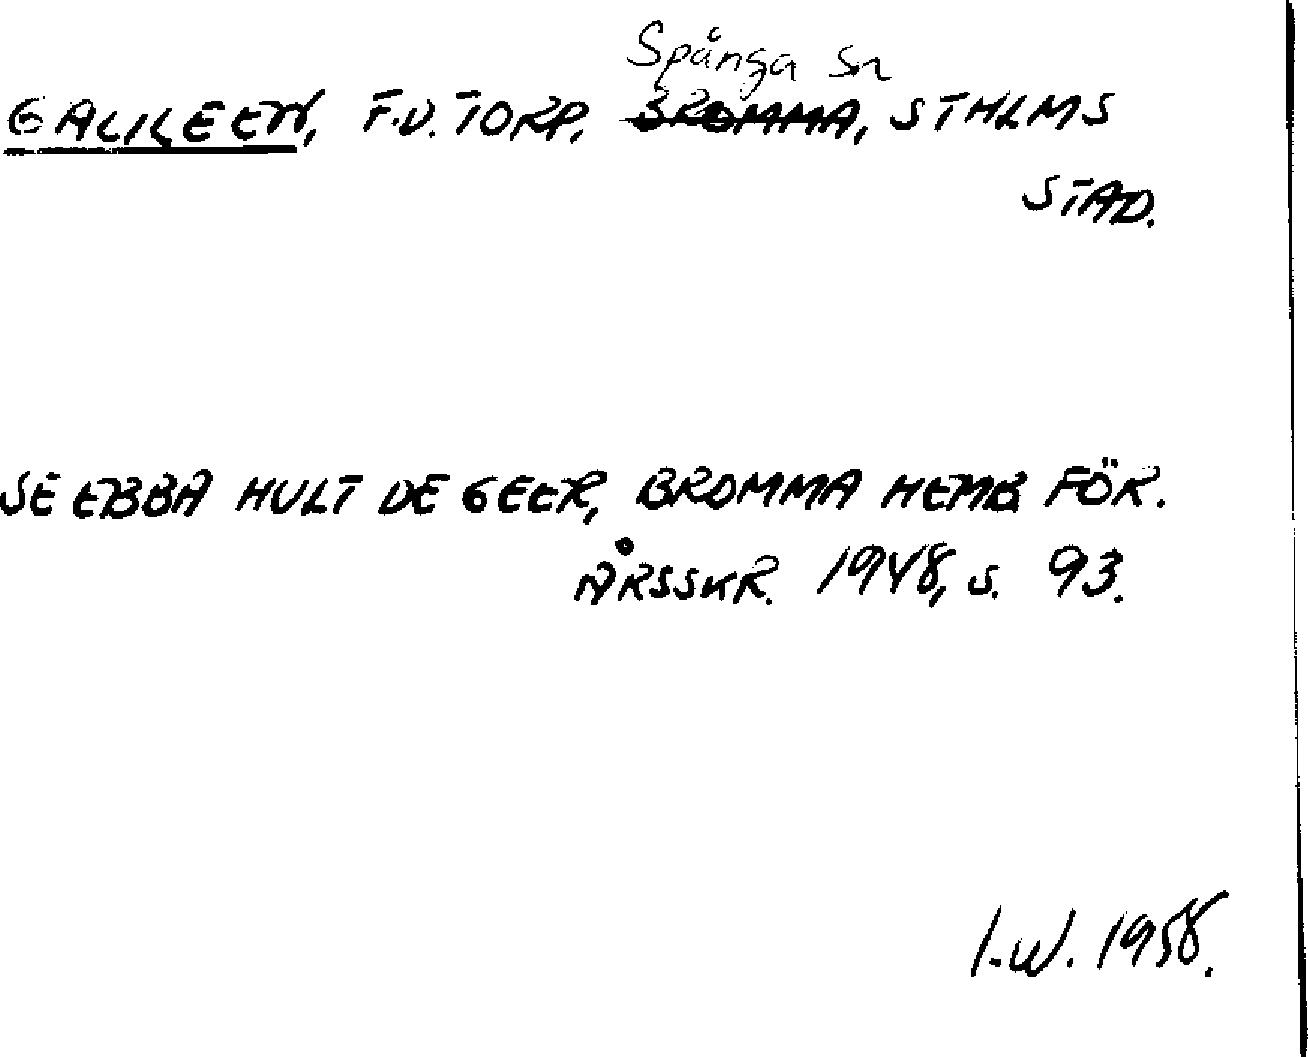 Spånga sn
GALILEEN, F.D. TORP, BROMMA, STHLMS
STAD.
SE EBBA HULT DE GEER, BROMMA HEMB FÖR.
ÅRSSKR. 1948, s. 93.
I.W. 1958.